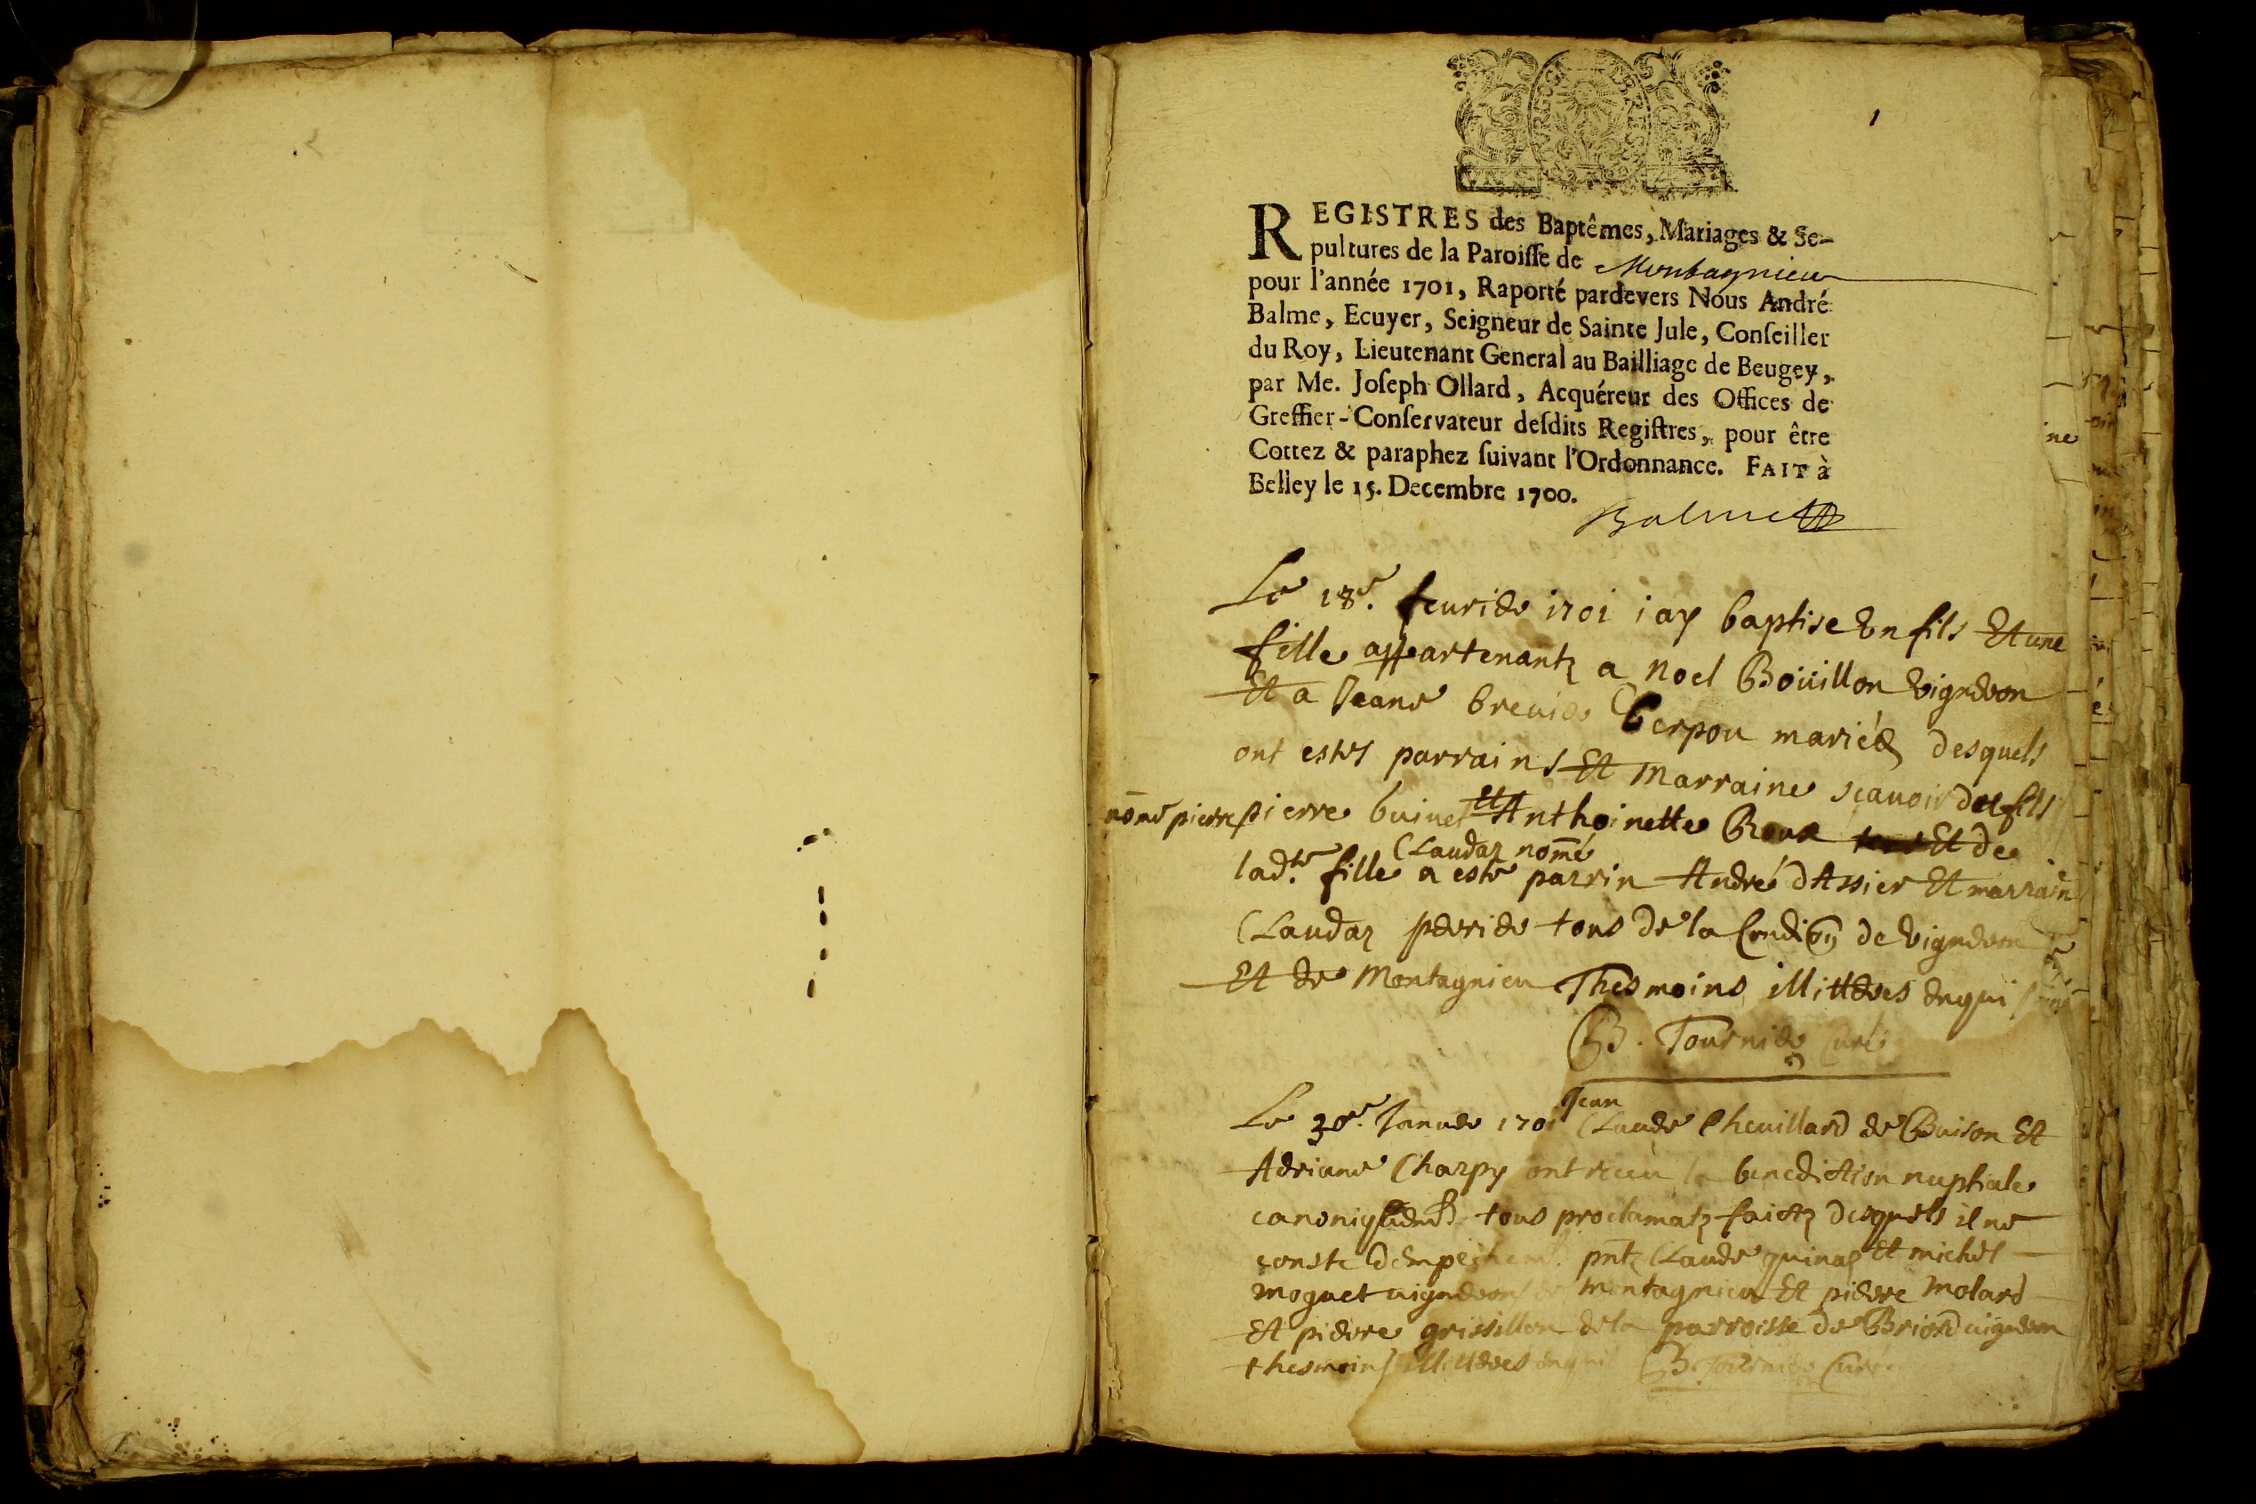 1
REGISTRES des Baptêmes, Mariages & Se-
pultures de la Paroisse de Montagnieu
pour l'année 1701, Raporté pardevers Nous André
Balme, Ecuyer, Seigneur de Sainte Jule, Conseiller
du Roy, Lieutenant General au Bailliage de Beugey,
par Me. Joseph Ollard, Acquéreur des Offices de
Greffier-Conservateur desdits Registres, pour être
Cottez & paraphez suivant l'Ordonnance. FAIT à
Belley le 15. Decembre 1700.
Balme
Le 18e. feurier 1701 iay baptise Un fils Et une
fille appartenantz a Noel Boüillon Vigneron
Et a Jeane mariés desquels
ont estes parrains Et Marraine sçauoir du fils
nōmé pierre pierre buinet et Anthoinette Et de
Claudaz nōmé
lad.te fille a este parrin André dAssier Et marrain
Claudaz tous de la de Vigneron
Et de Montagnieu Thesmoins illitteres enquis
B. Tournier Curé
Le 30e. Januier 1701 Jean Claude Cheuillard de Buison Et
Adriane Charpy ont receu la benediction nuptiale
tous proclamatz faictz desquels il ne
conste dempeschem.t pntz Claude guinaz Et michel
moguet uigneron de Montagnieu Et pierre Molard
Et pierre grissillon de la parroisse de Briord uigneron
thesmoins illitteres enquis B. Tournier Curé